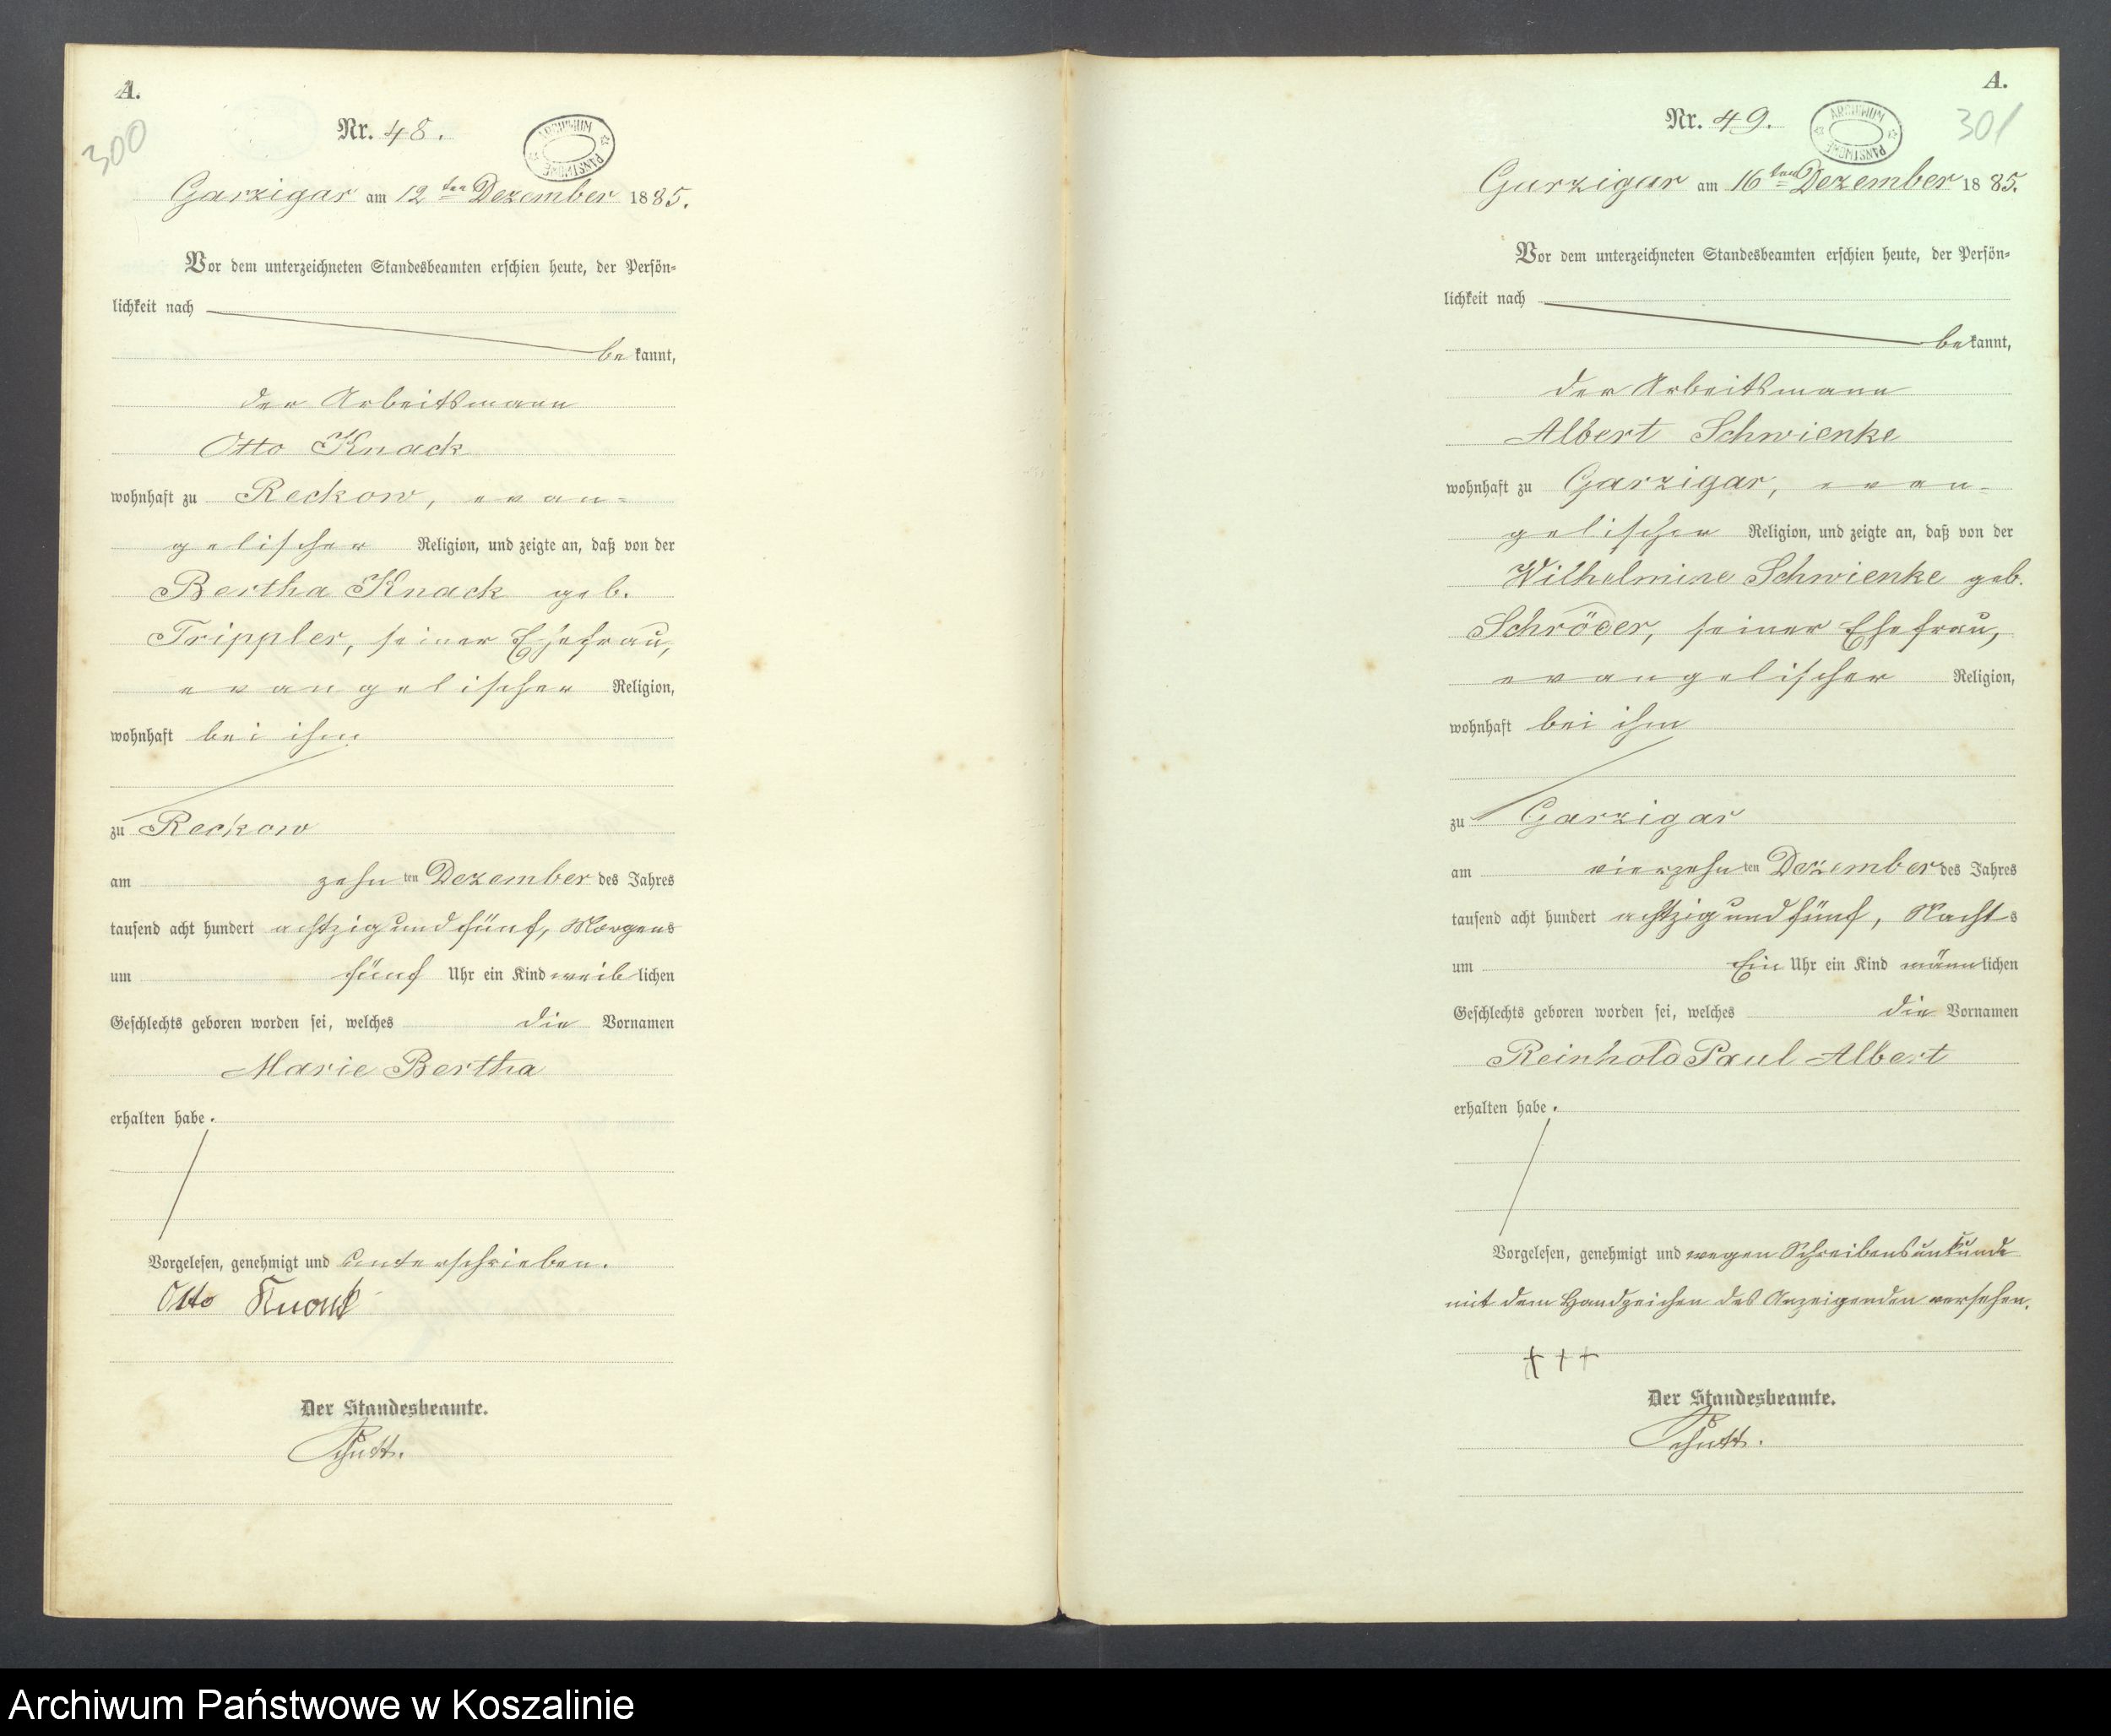 A.
300
Nr. 48.
ARCHIWUM PAŃSTWOWE
Garzigar am 12ten Dezember 1885.
Vor dem unterzeichneten Standesbeamten erschien heute, der Persön-
lichkeit nach
bekannt,
der Arbeitsmann
Otto Knack
wohnhaft zu Reckow, evan-
gelischer Religion, und zeigte an, daß von der
Bertha Knack geb.
Trippler, seiner Ehefrau,
evangelischer Religion,
wohnhaft bei ihm
zu Reckow
am zehnten Dezember des Jahres
tausend acht hundert achtzig und fünf, Morgens
um fünf Uhr ein Kind weiblichen
Geschlechts geboren worden sei, welches die Vornamen
Marie Bertha
erhalten habe.
Vorgelesen, genehmigt und unterschrieben.
Otto Knack
Der Standesbeamte.
A.
301
Nr. 49.
ARCHIWUM PAŃSTWOWE
Garzigar am 16ten Dezember 1885.
Vor dem unterzeichneten Standesbeamten erschien heute, der Persön-
lichkeit nach
bekannt,
der Arbeitsmann
Albert Schwienke
wohnhaft zu Garzigar, evan-
gelischer Religion, und zeigte an, daß von der
Wilhelmine Schwienke geb.
Schröder, seiner Ehefrau,
evangelischer Religion,
wohnhaft bei ihm
zu Garzigar
am vierzehnten Dezember des Jahres
tausend acht hundert achtzig und fünf, Nachts
um Ein Uhr ein Kind männlichen
Geschlechts geboren worden sei, welches die Vornamen
Reinhold Paul Albert
erhalten habe.
Vorgelesen, genehmigt und wegen Schreibensunkunde
mit dem Handzeichen des Anzeigenden versehen.
+++
Der Standesbeamte.
Archiwum Państwowe w Koszalinie